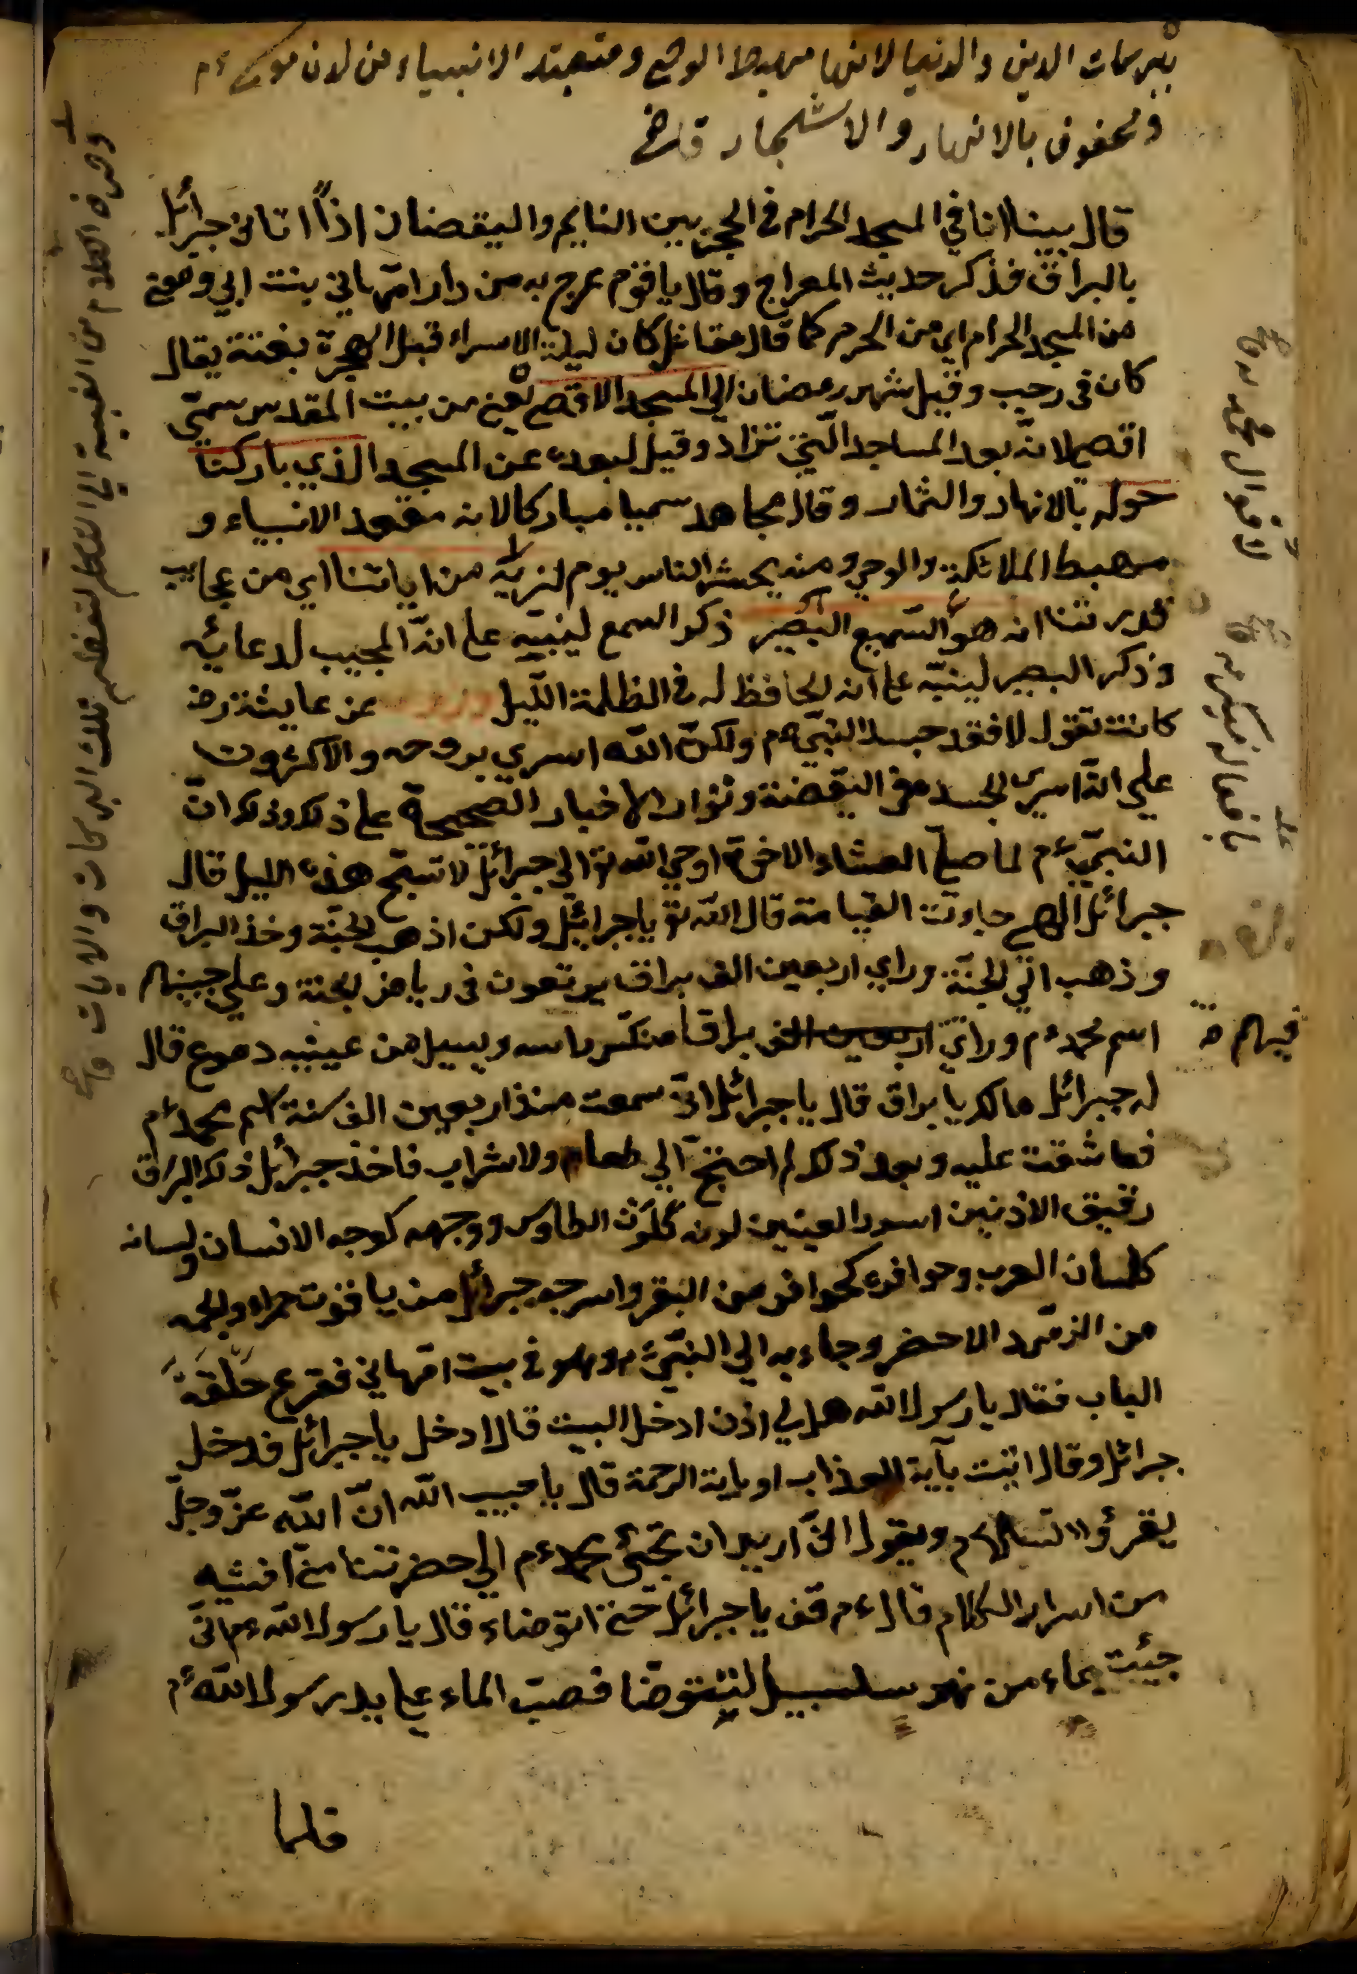 ببركات الدين والدنيا لانها مهبط الوحي ومتعبد الانبياء من لدن موسى ءم
ومحفوف بالانهار والاشجار قاضى
قال بينا انا في المسجد الحرام في الحجر بين النايم واليقضان اذا اتاني جبرائيل
بالبراق فذكر حديث المعراج وقال يا قوم عرج به من دار امهاني بنت ابي
من المسجد الحرام اي من الحرم كما قال مقاتل كان ليلة الاسراء قبل الهجرة بغتة يقال
كان في رجب وقيل شهر رمضان الي المسجد الاقصى يعني من بيت المقدس سمي
اقصى لانه بعد المساجد التي تزاد وقيل لبعده عن المسجد الذي باركنا
حوله بالانهار والثمار وقال مجاهد سميا مباركا لانه مقعد الانبياء و
مهبط الملائكة والوحي ومنه يحشر الناس يوم لنريه من اياتنا اي من عجايب
قدرتنا انه هو السميع البصير ذكر السمع لينبه على انه المجيب لدعائه
وذكر البصير لينبه على انه الحافظ له في الظلمة الليل عن عايشة رض
كانت تقول لا فقد جسد النبي ءم ولكن الله اسري بروحه والاكثرون
علي انه اسري الجسد في اليقضة وتواد الاخبار الصحيحة على ذلك وذكر ان
النبي ءم لما صلى العشاء الاخرة اوحي الله تع الى جبرائل لا تسبح هذه الليل قال
جبرائل الهي جاوت القيامة قال الله تع يا جبرائيل ولكن اذهب الجنة وخذ البراق
وذهب الي الجنة وراي اربعين الف براق يرتعون في رياض الجنة وعلي جبينهم
اسم محمد ءم وراي اربعين الف براقا منكس راسه ويسيل من عينيه دموع قال
له جبرائل مالك يا براق قال يا جبرائل اني سمعت منذ اربعين الف سنة اسم محمد ءم
فعاشقت عليه وبعد ذلك لم احتج الي طعام ولا شراب فاخذ جبرائيل ذلك البراق
رقيق الاذنين اسود العينين لونه كلون الطاوس ووجهه كوجه الانسان ولسانه
كلسان العرب وحوافره كحوافر من البقر واسرجه جبرائل من ياقوت حمراء والجمه
من الزمرد الاحضر وجاء به الي النبي ءم وهو في بيت امهاني فقرع حلقة
الباب فقال يا رسول الله هل لي اذن ادخل البيت قال ادخل يا جبرائل فدخل
جبرائل وقال اتيت بآية العذاب او باية الرحمة قال يا حبيب الله ان الله عز وجل
يقرؤ السلام ويقول اني اريد ان تجئ محمد ءم الي حضرتنا حتى افشيه
من اسرار الكلام قال ءم قف يا جبرائل حتى اتوضاء قال يا رسول الله ءم اني
جيئت بماء من نهر سلسبيل لتتوضا فصب الماء على يد رسول الله ءم
فلما
وصرف الكلام من الغيبة الي التكلم لتعظيم تلك البركات والايات
فيهم